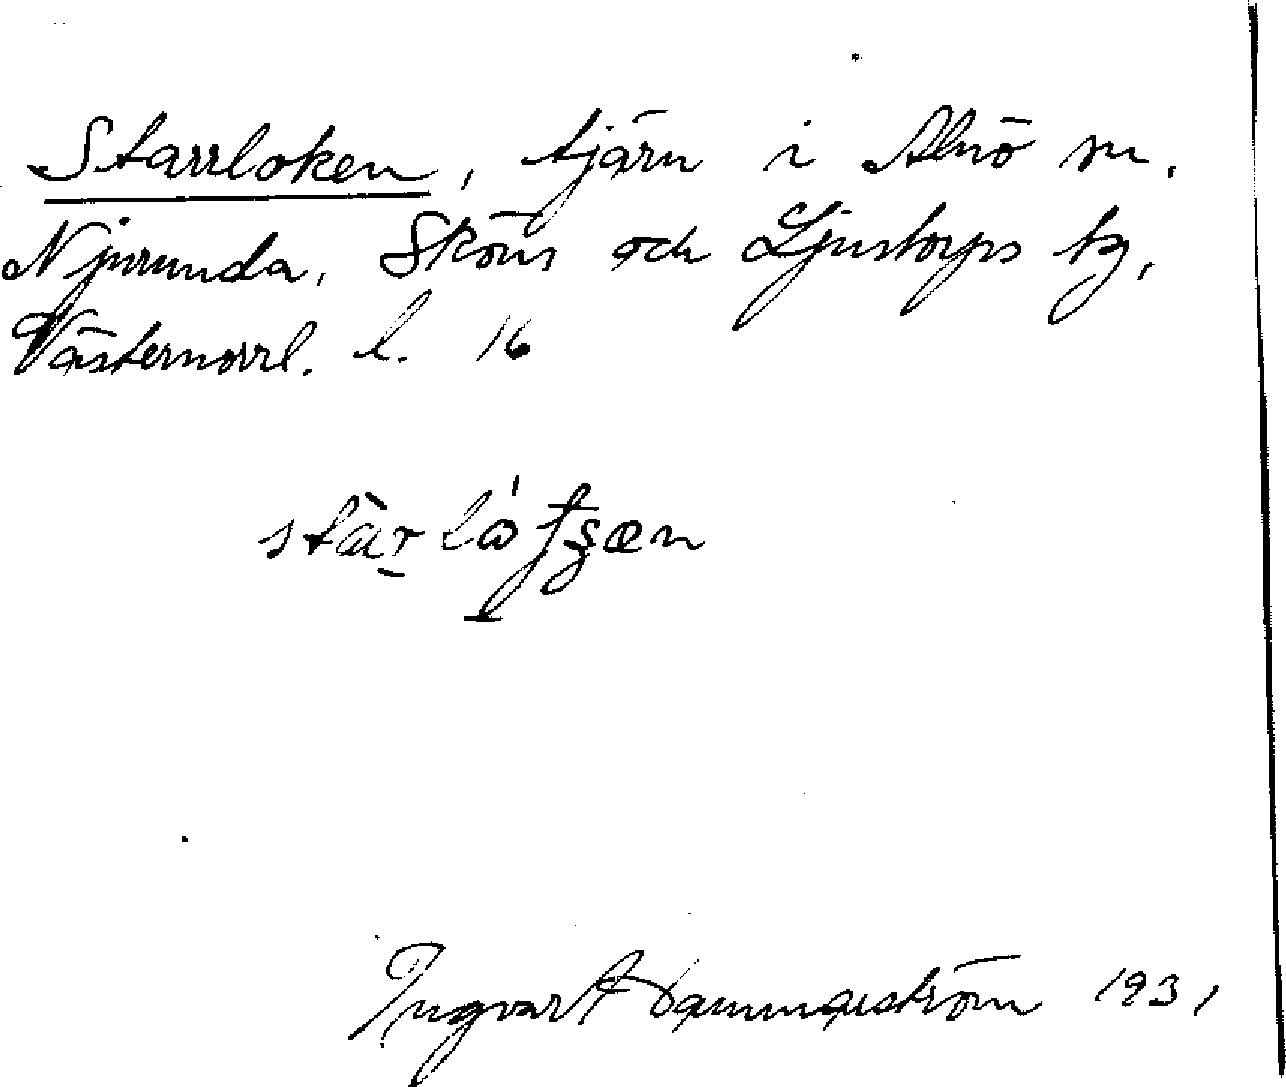 Starrloken, tjärn i Alnö sn.
Njurunda, Sköns och Ljustorps tg,
Västernorrl. l. 16
Ingvar Hammarström 1931